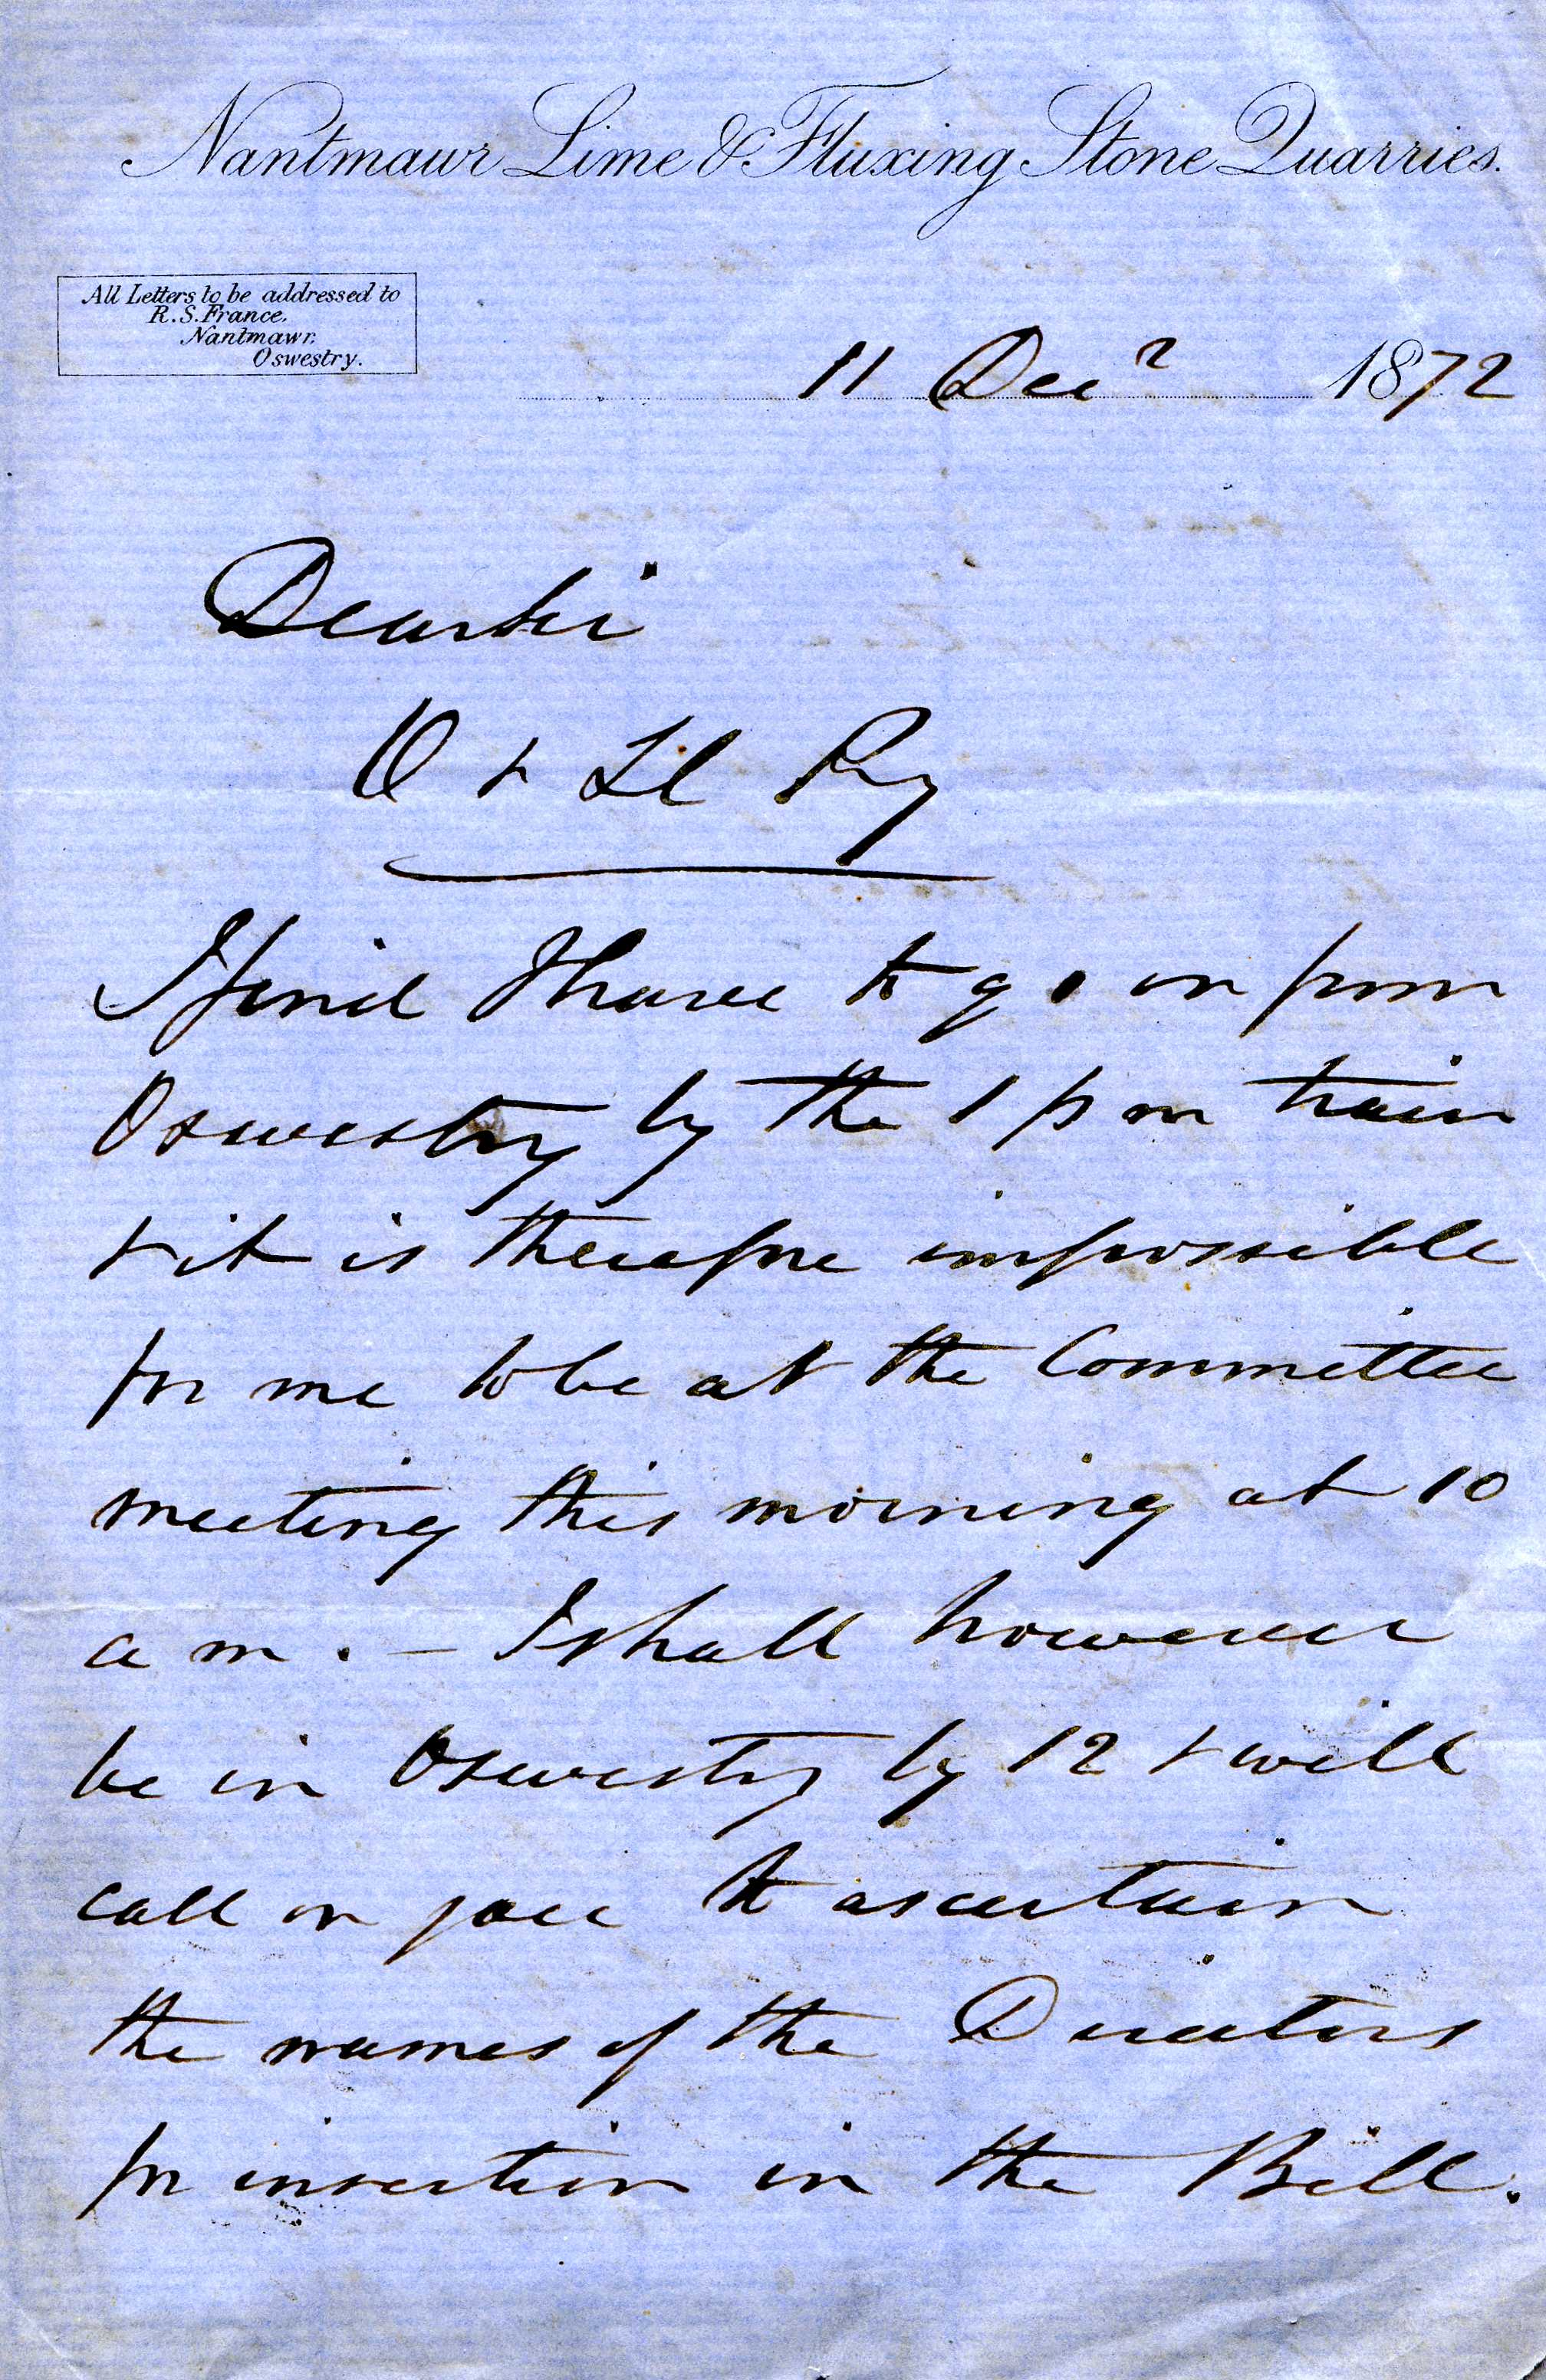 Nantmawr Lime & Fluxing Stone Quarries.
All Letters to be addressed to
R. S. France.
Nantmawr.
Oswestry.
11 Decr 1872
Dear Sir
O & Ll Ry
I find I have to go on from
Oswestry by the 1 pm train
& it is therefore impossible
for me to be at the Committee
meeting this morning at 10
a m. – I shall however
be in Oswestry by 12 & will
call on you to ascertain
the names of the Directors
for insertion in the Bill.